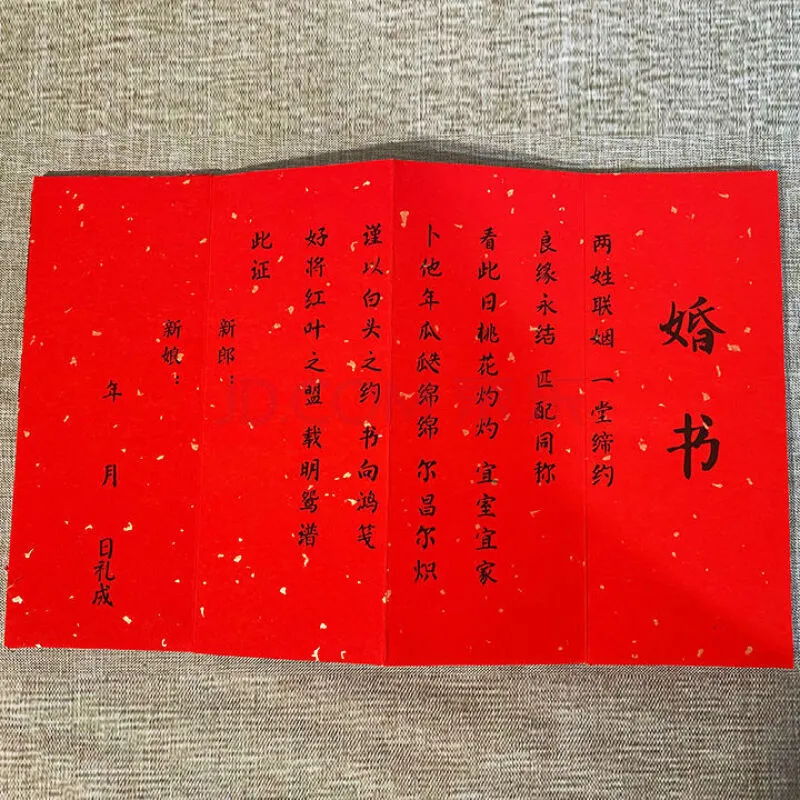 婚书
两姓联姻 一堂缔约
良缘永结 匹配同称
看此日桃花灼灼 宜室宜家
卜他年瓜瓞绵绵 尔昌尔炽
谨以白头之约 书向鸿笺
好将红叶之盟 载明鸳谱
此证
新郎：
新娘：
年 月 日礼成